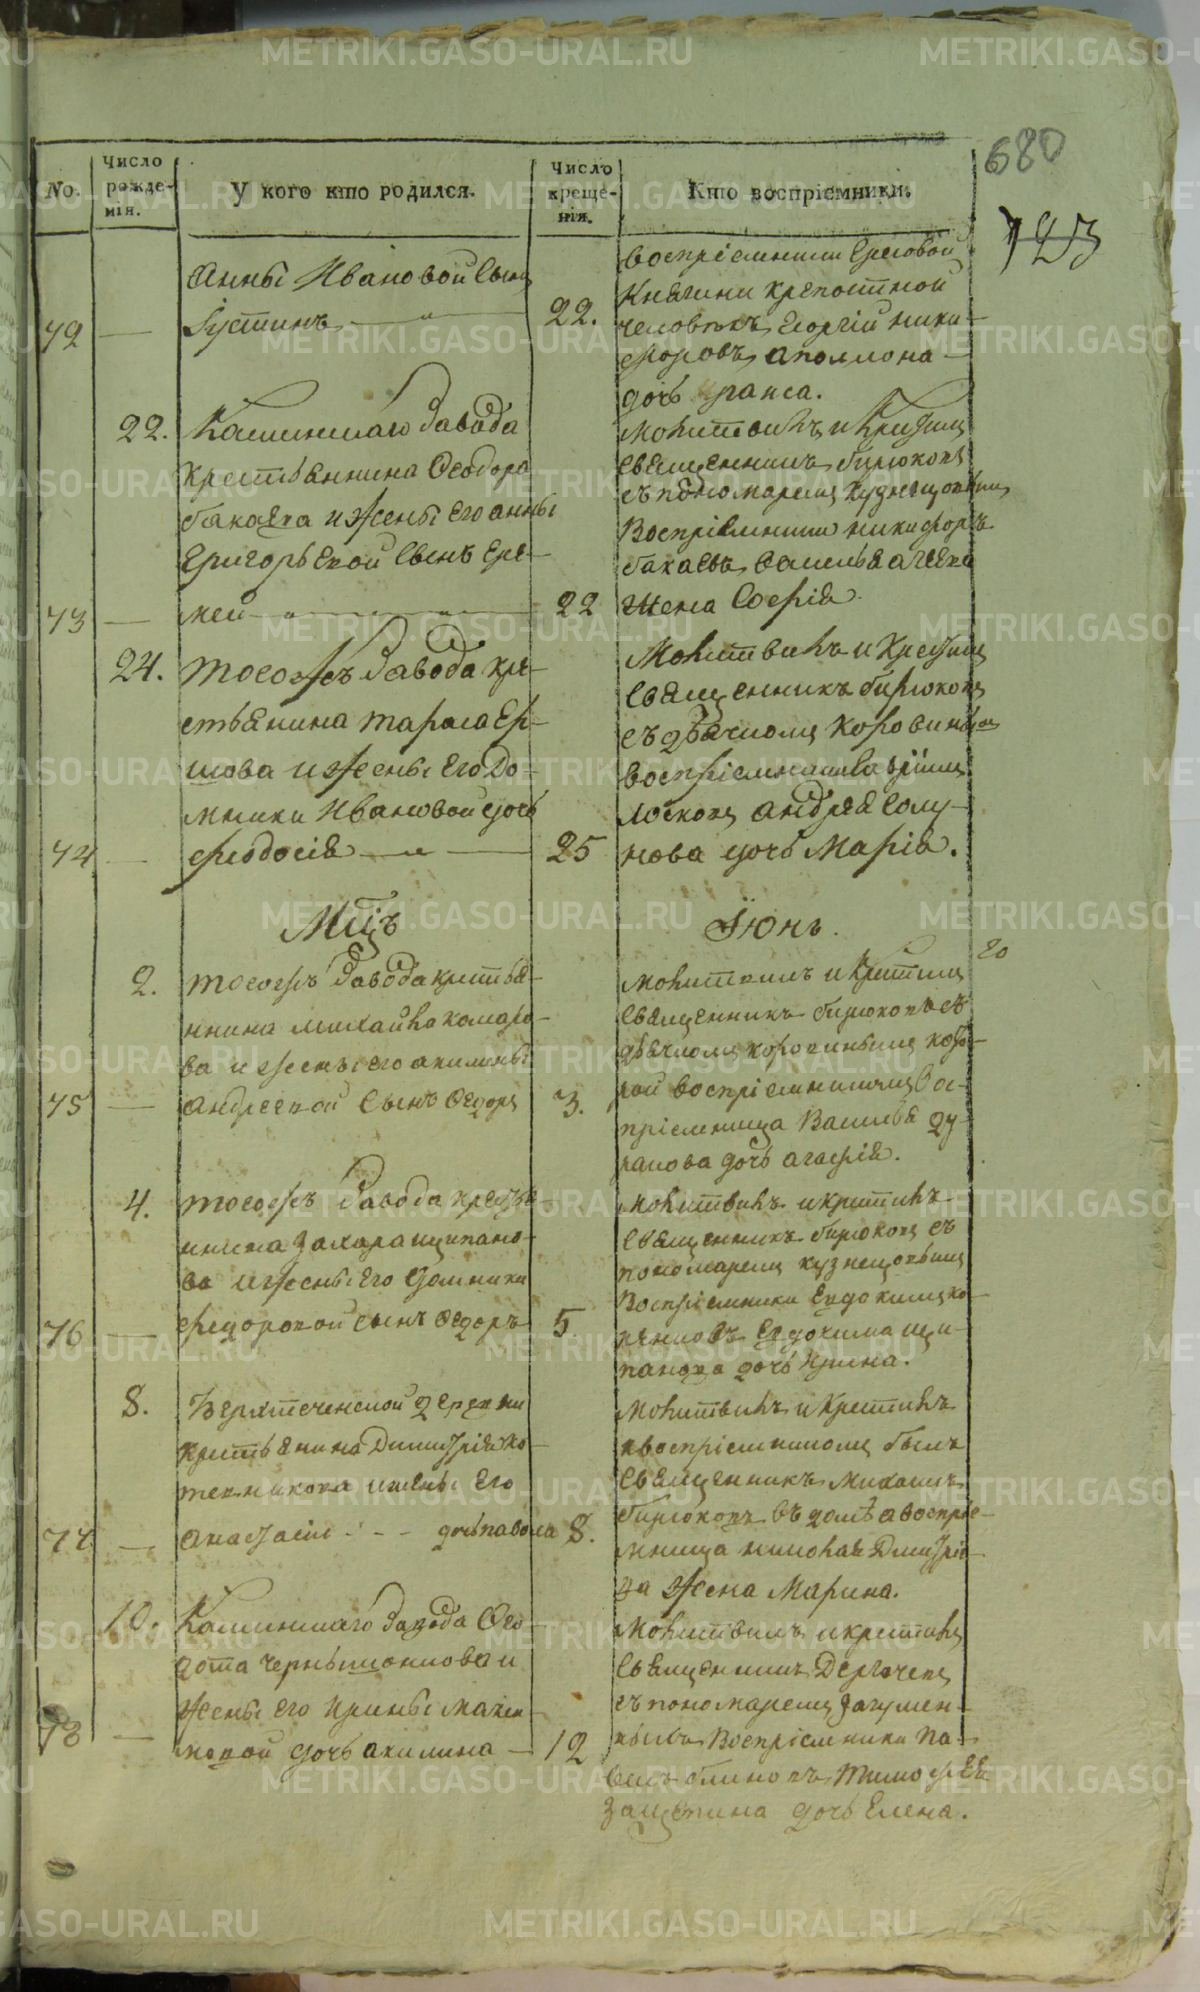 680
723
No.
Число рожде-нія.
У кого кто родился.
Число креще-нія.
Кто воспріемники.
Анны Ивановой сынъ
72 — Іустинъ — 22.
воспріемники
Княгини крепостной
человѣкъ Георгій Ники-
форовъ
дочь
22. Каслинскаго завода
крестьянина Ѳеодора
бакаева и жены Его анны
Григорьевой сынъ Ере-
73 — мей — 22
Молитвилъ и Крестилъ
священникъ бирюковъ
съ пономаремъ кузнецовымъ
Воспріемники никифоръ
бакаевъ
жена Софія
24. тогожъ завода кре-
стьянина тараса Ер-
шова и жены Его До-
мники Ивановой дочь
74 — феодосія — 25
Молитвилъ и Крестилъ
священникъ бирюковъ
съ дьячкомъ коровинымъ
воспріемники
андрея
нова дочь Марія.
Мцъ Іюнь.
20
2. тогожъ завода крестья-
нина михаила комаро-
ва и жены его акилины
75 — андреевой сынъ Ѳедоръ 3.
молитвилъ и крестилъ
священникъ бирюковъ съ
дьячкомъ коровинымъ кото-
рой воспріемникомъ вос-
пріемница Василья ду-
ракова дочь агафія.
4. тогожъ завода крестья-
нина захара щипано-
ва и жены Его Домники
76 — федоровой сынъ Ѳедоръ 5.
молитвилъ и крестилъ
священникъ бирюковъ съ
пономаремъ кузнецовымъ
Воспріемники Евдокимъ
Евдокима щи-
панова дочь Ирина.
8. Верхтеченской деревни
крестьянина Димитрія ко-
тенникова и жены Его
77 — анастасіи - - - дочь павола 8.
Молитвилъ и крестилъ
и воспріемникомъ былъ
священникъ Михаилъ
бирюковъ въ домѣ а воспріе-
мница
жена Марина.
10. Каслинскаго завода Ѳео-
дота
жены Его ирины маки-
78 — мовой дочь акилина — 12
Молитвилъ и крестилъ
священникъ Дергачевъ
съ пономаремъ Загумен-
нымъ Воспріемники Па-
велъ блиновъ тимофея
защепина дочь Елена.
METRIKI.GASO-URAL.RU